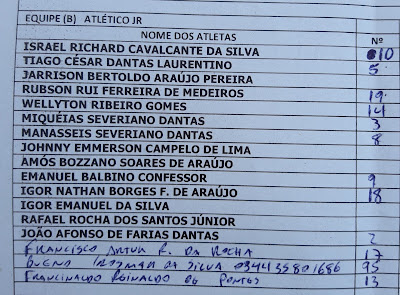 EQUIPE (B) ATLÉTICO JR
NOME DOS ATLETAS Nº
ISRAEL RICHARD CAVALCANTE DA SILVA 10
TIAGO CÉSAR DANTAS LAURENTINO 5
JARRISON BERTOLDO ARAÚJO PEREIRA
RUBSON RUI FERREIRA DE MEDEIROS 19
WELLYTON RIBEIRO GOMES 14
MIQUÉIAS SEVERIANO DANTAS 3
MANASSEIS SEVERIANO DANTAS 8
JOHNNY EMMERSON CAMPELO DE LIMA
AMÓS BOZZANO SOARES DE ARAÚJO
EMANUEL BALBINO CONFESSOR 9
IGOR NATHAN BORGES F. DE ARAÚJO 18
IGOR EMANUEL DA SILVA
RAFAEL ROCHA DOS SANTOS JÚNIOR
JOÃO AFONSO DE FARIAS DANTAS 2
FRANCISCO ARTUR F. DA ROCHA 17
BUENO DA SILVA 034435801686 95
FRANCINALDO REINALDO DE PONTES 13